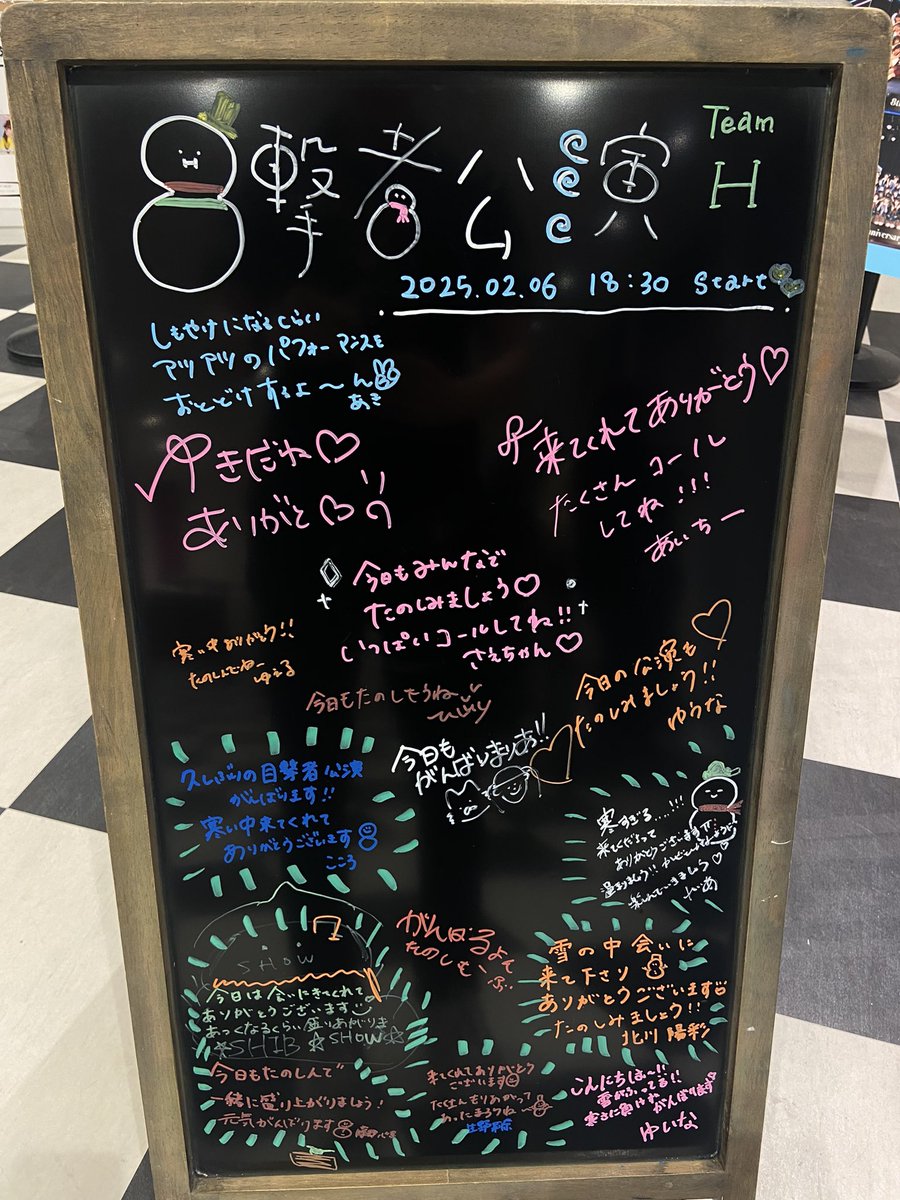 目撃者公演
Team
H
2025.02.06 18:30 Start
しもやけになるくらい
アツアツのパフォーマンスを
おとどけするよ〜ん
あき
ゆきだね♡
ありがと♡
来てくれてありがとう♡
たくさんコール
してね!!!
あいちー
今日もみんなで
たのしみましょう♡
いっぱいコールしてね!!
さえちゃん♡
寒い中ありがとう!!
たのしんでねー
今日もたのしもうね
今日の公演も
たのしみましょう!!
ゆうな
今日も
がんばりまりあ!!
久しぶりの目撃者公演
がんばります!!
寒い中来てくれて
ありがとうございます
こころ
寒すぎる.....!!!
来てくださって
ありがとうございます
温まりましょう!!
楽しんでいきましょう♡
SHOW
今日は会いにきてくれて
ありがとうございます
あつくなるくらい盛りあがりま
☆SHIB☆SHOW☆
がんばるよ
たのしも
雪の中会いに
来て下さり
ありがとうございます
たのしみましょう!!
北川 陽彩
今日もたのしんで
一緒に盛り上がりましょう!
元気がんばります
来てくれてありがとう
ございます
たくさんもりあがって
あったまろうね
こんにちはー!!
雪がふってる!!
寒さに負けず がんばります
ゆいな